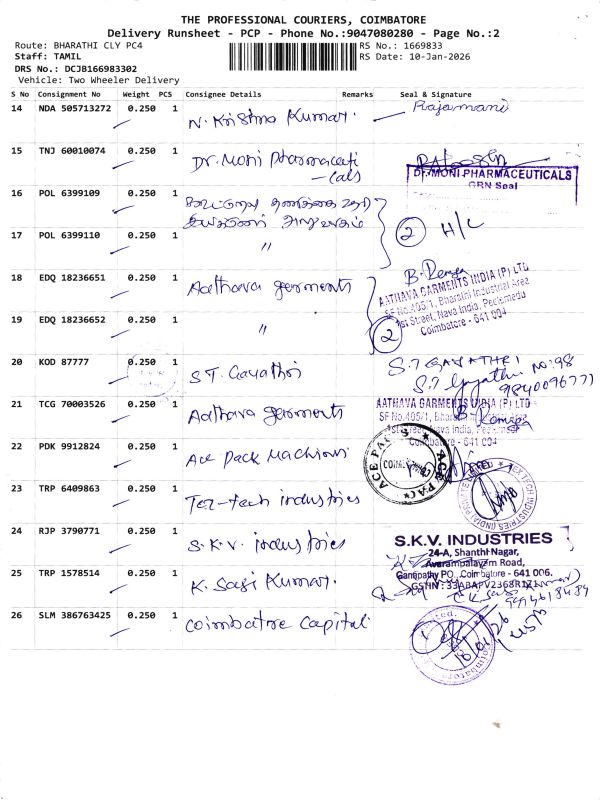 THE PROFESSIONAL COURIERS, COIMBATORE
Delivery Runsheet - PCP - Phone No.:9047080280 - Page No.:2
Route: BHARATHI CLY PC4
RS No.: 1669833
Staff: TAMIL
RS Date: 10-Jan-2026
DRS No.: DCJB166983302
Vehicle: Two Wheeler Delivery
S No Consignment No Weight PCS Consignee Details Remarks Seal & Signature
14 NDA 505713272 0.250 1 N. Krishna Kumar. Rajamani
15 TNJ 60010074 0.250 1 Dr. Moni Pharmaceuti
-cals
Dr. MONI PHARMACEUTICALS
GRN Seal
16 POL 6399109 0.250 1
17 POL 6399110 0.250 1 〃 2 H/C
18 EDQ 18236651 0.250 1 Aathava garments
B. Remya
AATHAVA GARMENTS INDIA (P) LTD
SF No.495/1, Bharathi Industrial Area
1st Street, Nava India, Peelamedu
Coimbatore - 641 004
19 EDQ 18236652 0.250 1 〃 2
20 KOD 87777 0.250 1 S T. Gayathri
S.T GAYATHRI NO:98
S.T Gayathri
21 TCG 70003526 0.250 1 Aathava garments
AATHAVA GARMENTS INDIA (P) LTD
SF No.495/1,
1st Street, Nava India,
Coimbatore - 641 004
B. Remya
22 PDK 9912824 0.250 1 Ace Pack Machines
ACE PACK
23 TRP 6409863 0.250 1 Tex-tech industries
TEX TECH INDUSTRIES (INDIA) PRIVATE LIMITED
24 RJP 3790771 0.250 1 S.K.V. industries
S.K.V. INDUSTRIES
24-A, Shanthi Nagar,
Avarampalayam Road,
Ganapathy PO., Coimbatore - 641 006.
25 TRP 1578514 0.250 1 K. Sasi Kumar.
9994618484
26 SLM 386763425 0.250 1 Coimbatore Capital
10/01/26